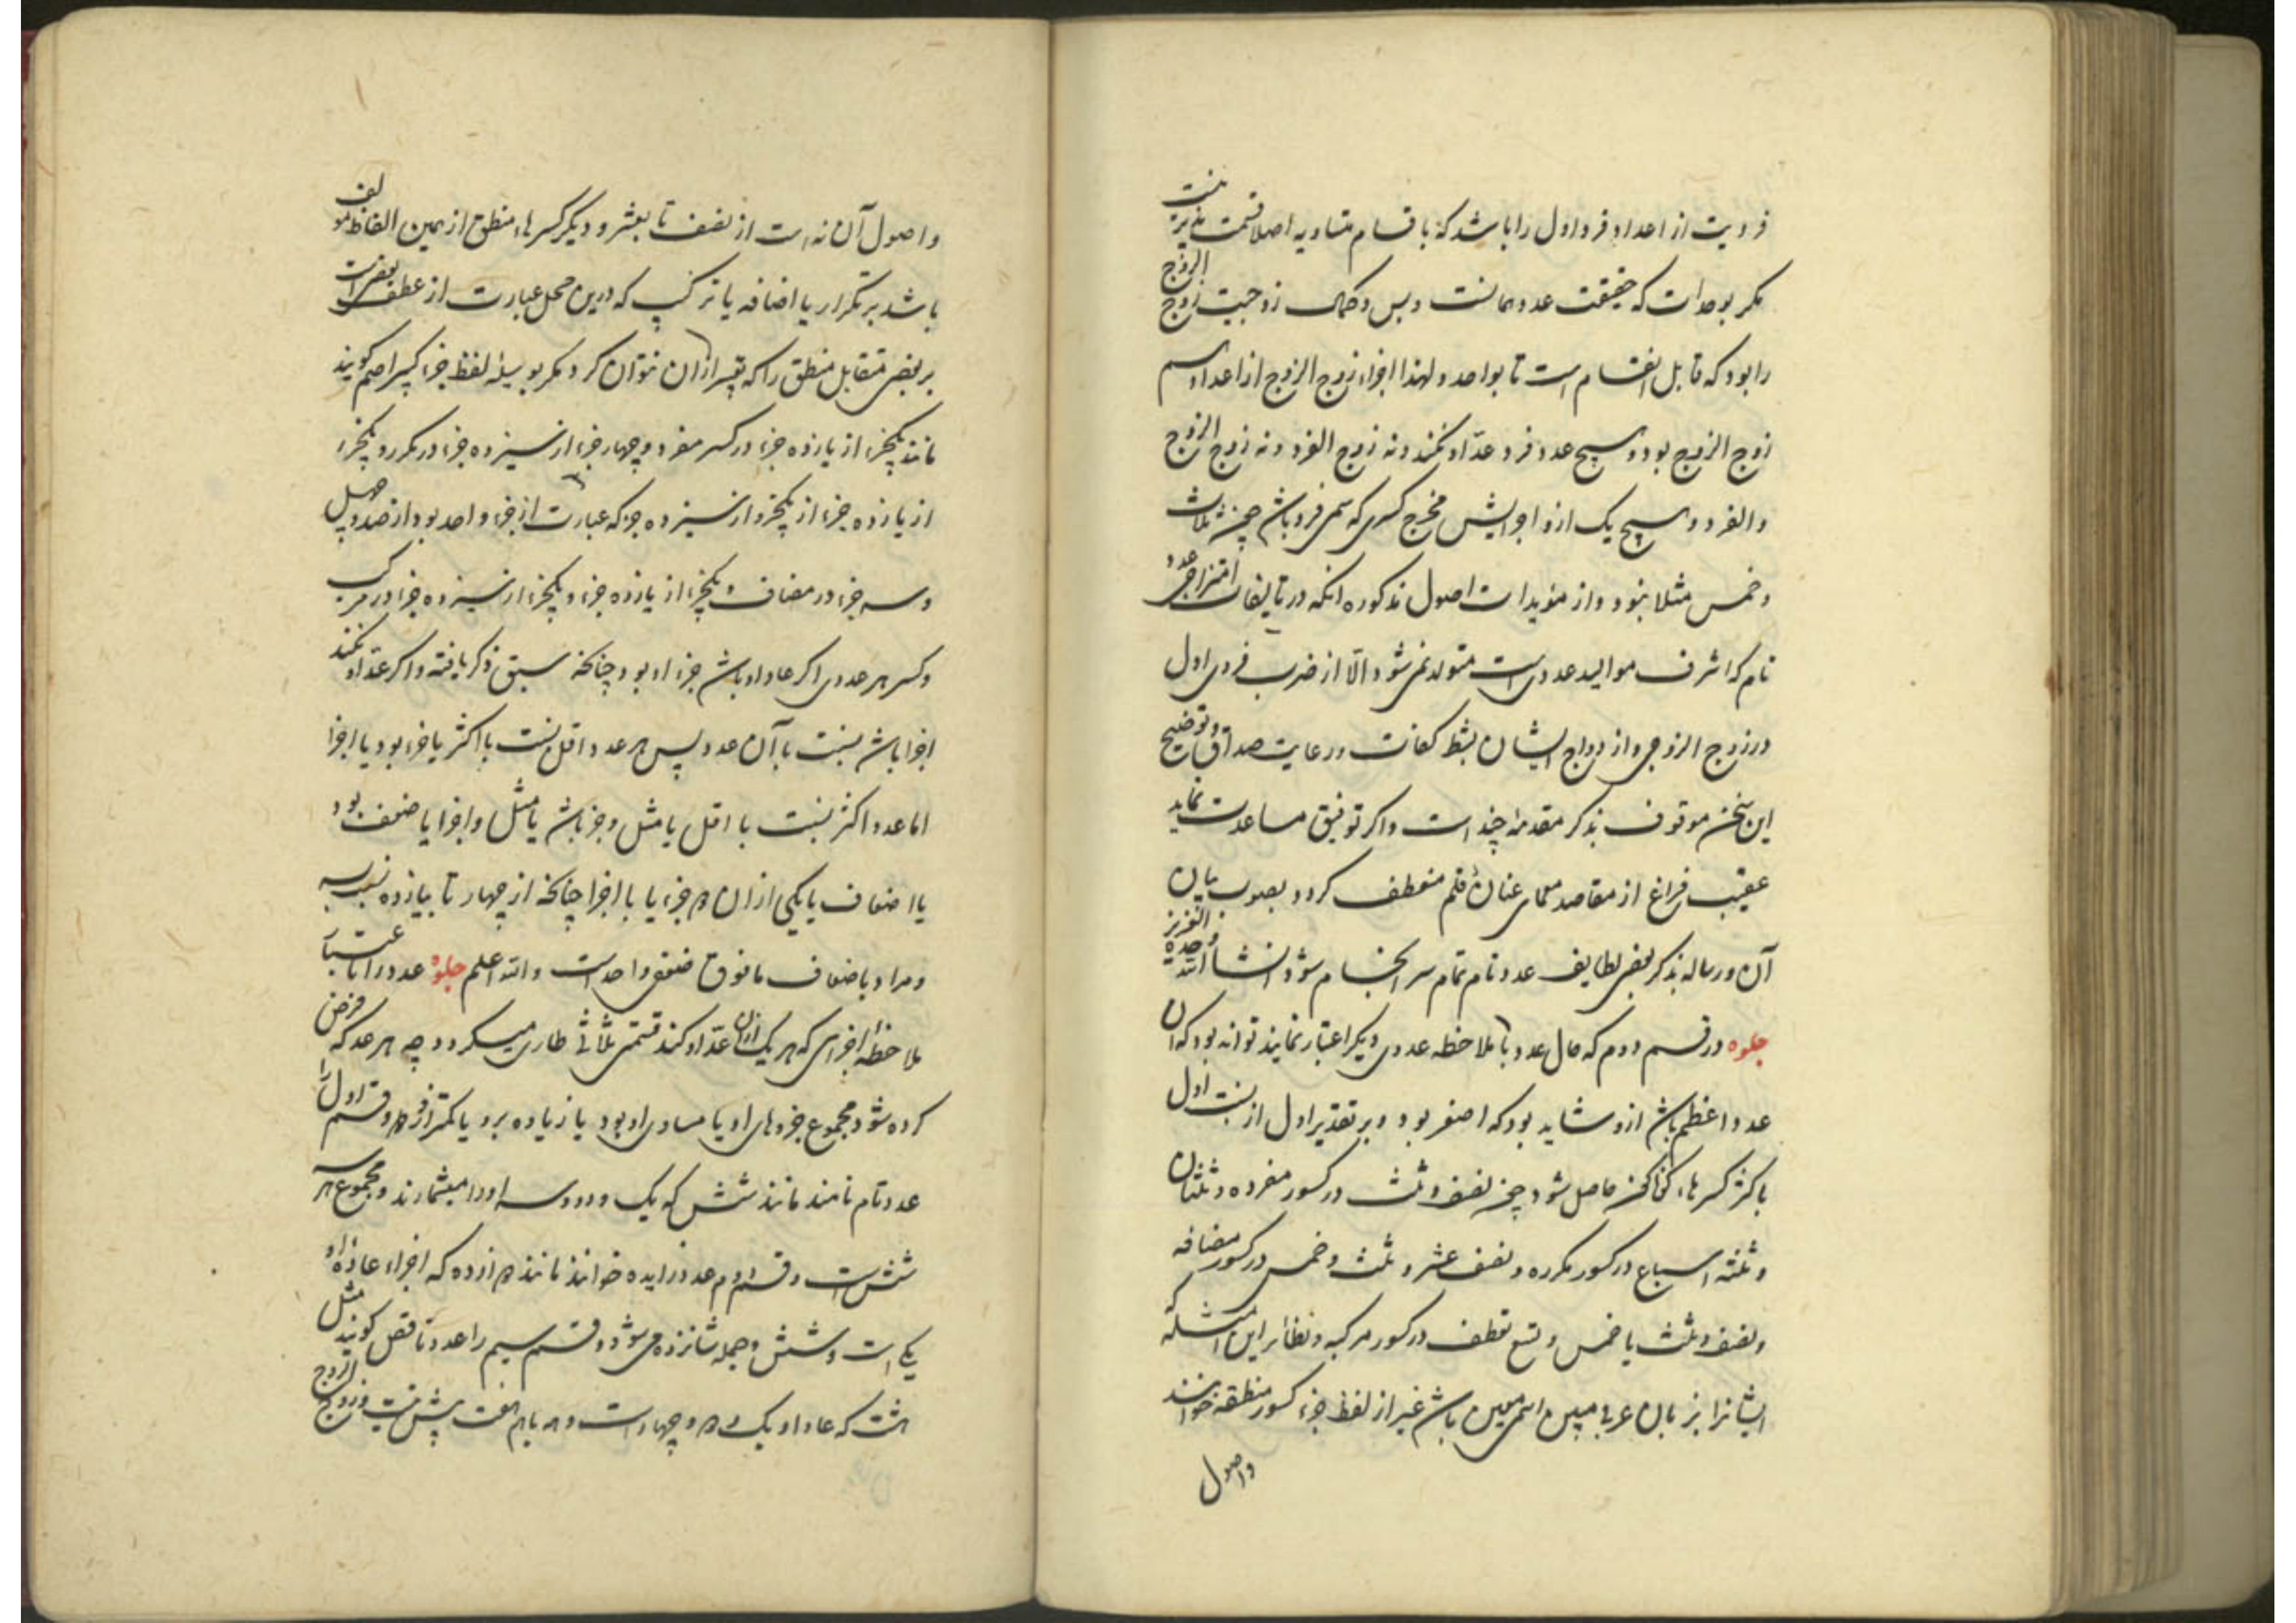 فردیت از اعداد فرد اول را باشد که باقسام متساویه اصلا قسمت پذیر نیست
مکر بوحدات که حقیقت عدد همانست و بس و کمال زوجیت زوج الزوج
را بود که قابل انقسام است تا بواحد و لهذا اجزاء زوج الزوج از اعداد هم
زوج الزوج بود و هیچ عدد فرد عدّ او نکند و نه زوج الفرد و نه زوج الزوج
والفرد و هیچ یک از اجزایش مخرج کسری که سمی فرد باشد چون ثلث
و خمس مثلا نبود و از مؤیدات اصول مذکوره آنکه در تالیفات امتزاجی عدد
تام که اشرف موالید عددی است متولد نمی شود الّا از ضرب فردی اول
در زوج الزوجی و ازدواج ایشان بشرط کفات و رعایت صداق و توضیح
این سخن موقوف بذکر مقدمه چند است و اکر توفیق مساعدت نماید
عقیب فراغ از مقاصد معمای عنان قلم منعطف کردد بصوب بیان
آن و رساله بذکر بعضی لطایف عدد تام تمام سر انجام شود انشاء الله وحده العزیز
جلوه در قسم دوم که حال عدد با ملاحظه عددی دیکر اعتبار نمایند تواند بود که آن
عدد اعظم باشد ازو و شاید بود که اصغر بود و بر تقدیر اول از نسبت اول
باکثر کسرهاء کوناکون حاصل شود چون نصف و ثلث در کسور مفرده و ثلثان
و ثلثه اسباع در کسور مکرره و نصف عشر و ثلث و خمس در کسور مضافه
و نصف و ثلث یا خمس و تسع بعطف در کسور مرکبه و نظائر این امثله که
ایشانرا بزبان عربی مبین اسمی معین باشد غیر از لفظ جزء کسور منطقه خوانند
واصول
واصول آن نه است از نصف تا بعشر و دیکر کسرهاء منطق از همین الفاظ مولف
باشد بر تکرار یا اضافه یا ترکیب که درین محل عبارت از عطف بعضیست
بر بعضی و مقابل منطق را که تعبیر ازان نتوان کرد مکر بوسیله لفظ جزء کسر اصم کویند
مانند یکجزء از یازده جزء در کسر مفرد و چهار جزء از سیزده جزء در مکرر و یکجزء
از یازده جزء از یکجزو از سیزده جزء که عبارت از جزء واحد بود از صد و چهل
و سه جزء در مضاف و یکجزء از یازده جزء و یکجزء از سیزده جزء در مرکب
و کسر هر عددی اکر عاد او باشد جزء او بود چنانکه سبق ذکر یافته و اکر عدّ او نکند
اجزا باشد نسبت بآن عدد پس هر عدد اقل نسبت باکثر یا جزء بود یا اجزا
اما عدد اکثر نسبت با اقل یا مثل و جزء باشد یا مثل و اجزا یا ضعف بود
یا اضعاف یا یکی ازان هر دو با جزء یا با اجزا چنانکه از چهار تا بیازده نسبت بسه
و مراد باضعاف مافوق ضعف واحدست والله اعلم جلوه عدد را باعتبار
ملاحظه اجزای که هر یک ازان عدّ او کند قسمتی ثلاثی طاری میکردد چه هر عدد که فرض
کرده شود مجموع جزوهای او یا مساوی او بود یا زیاده برو یا کمتر ازو و قسم اول را
عدد تام نامند مانند شش که یک و دو و سه او را میشمارند و مجموع هر سه
شش است و قسم دوم عدد زایده خوانند مانند دوازده که اجزاء عاده او
یکی است و شش و جمله شانزده می شود و قسم سیم را عدد ناقص کویند مثل
هشت که عاد او یک و دو و چهارست و همه باهم هفت بیش نیست و زوج الزوج